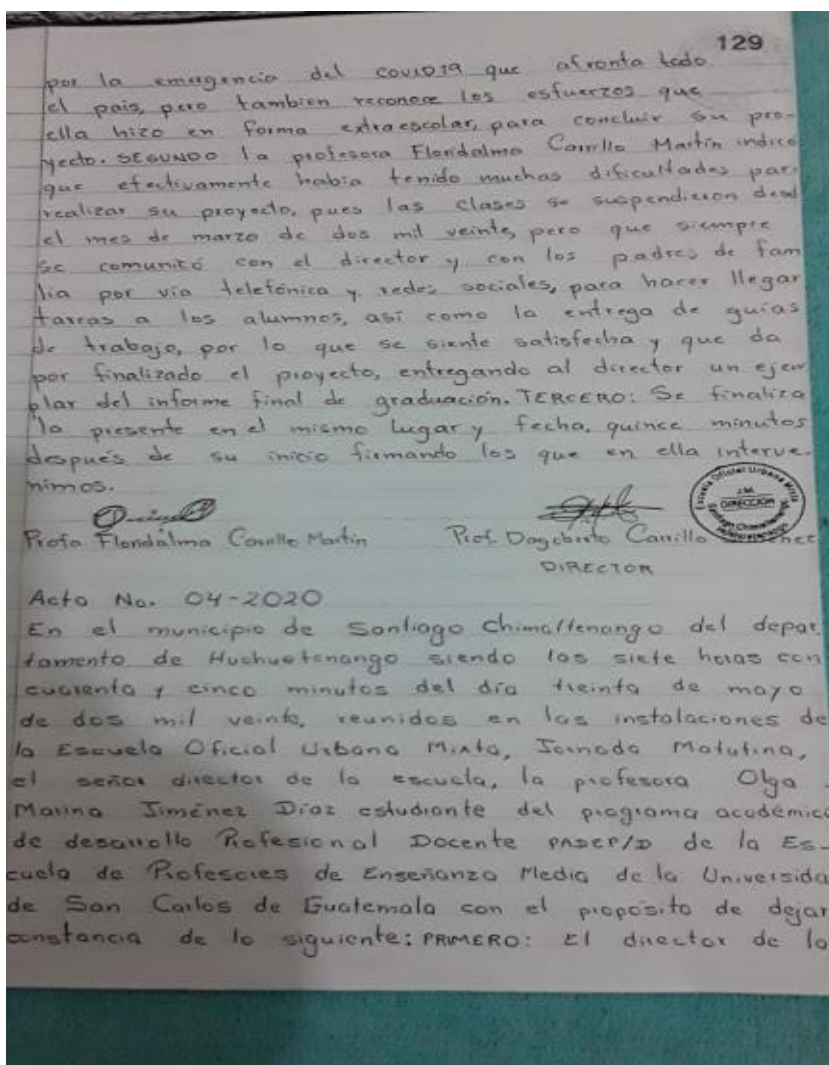 129
por la emergencia del COVID19 que afronta todo
el pais, pero tambien reconoce los esfuerzos que
ella hizo en forma extraescolar, para concluir su pro-
yecto. SEGUNDO la profesora Floridalma Carrillo Martín indicó
que efectivamente había tenido muchas dificultades par
realizar su proyecto, pues las clases se suspendieron desd
el mes de marzo de dos mil veinte, pero que siempre
se comunicó con el director y con los padres de fam
lia por via telefónica y redes sociales, para hacer llegar
tareas a los alumnos, asi como la entrega de guías
de trabajo, por lo que se siente satisfecha y que da
por finalizado el proyecto, entregando al director un ejem
plar del informe final de graduación. TERCERO: Se finaliza
la presente en el mismo lugar y fecha, quince minutos
después de su inicio firmando los que en ella interve-
nimos.
Escuela Oficial Urbana Mixta
J.M.
DIRECCION
Santiago Chimaltenango
Huehuetenango
Profa Floridalma Carrillo Martín Prof. Dagoberto Carrillo
DIRECTOR
Acta No. 04-2020
En el municipio de Santiago Chimaltenango del depar
tamento de Huehuetenango siendo las siete horas con
cuarenta y cinco minutos del día treinta de mayo
de dos mil veinte, reunidos en las instalaciones de
la Escuela Oficial Urbana Mixta, Jornada Matutina,
el señor director de la escuela, la profesora Olga
Marina Jiménez Díaz estudiante del programa académico
de desarrollo Profesional Docente PADEP/D de la Es-
cuela de Profesores de Enseñanza Media de la Universida
de San Carlos de Guatemala con el propósito de dejar
constancia de lo siguiente: PRIMERO: El director de la